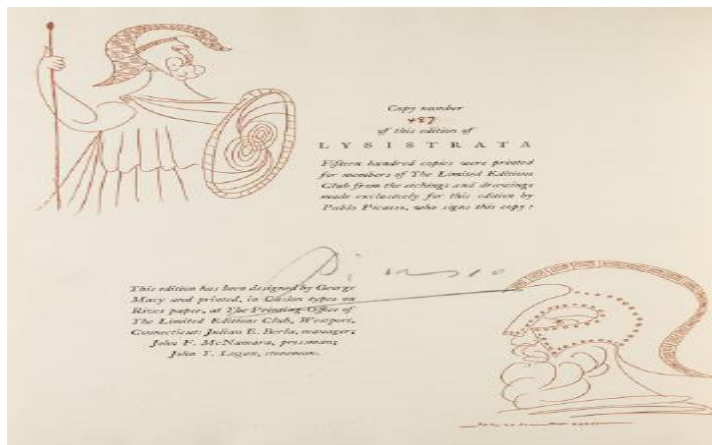 Copy number
487
of this edition of
LYSISTRATA
Fifteen hundred copies were printed
for members of The Limited Editions
Club from the etchings and drawings
made exclusively for this edition by
Pablo Picasso, who signs this copy:
Picasso
This edition has been designed by George
Macy and printed, in Caslon types on
Rives paper, at The Printing-Office of
The Limited Editions Club, Westport,
Connecticut: Julian E. Berla, manager;
John F. McNamara, pressman;
John T. Logan, stoneman.